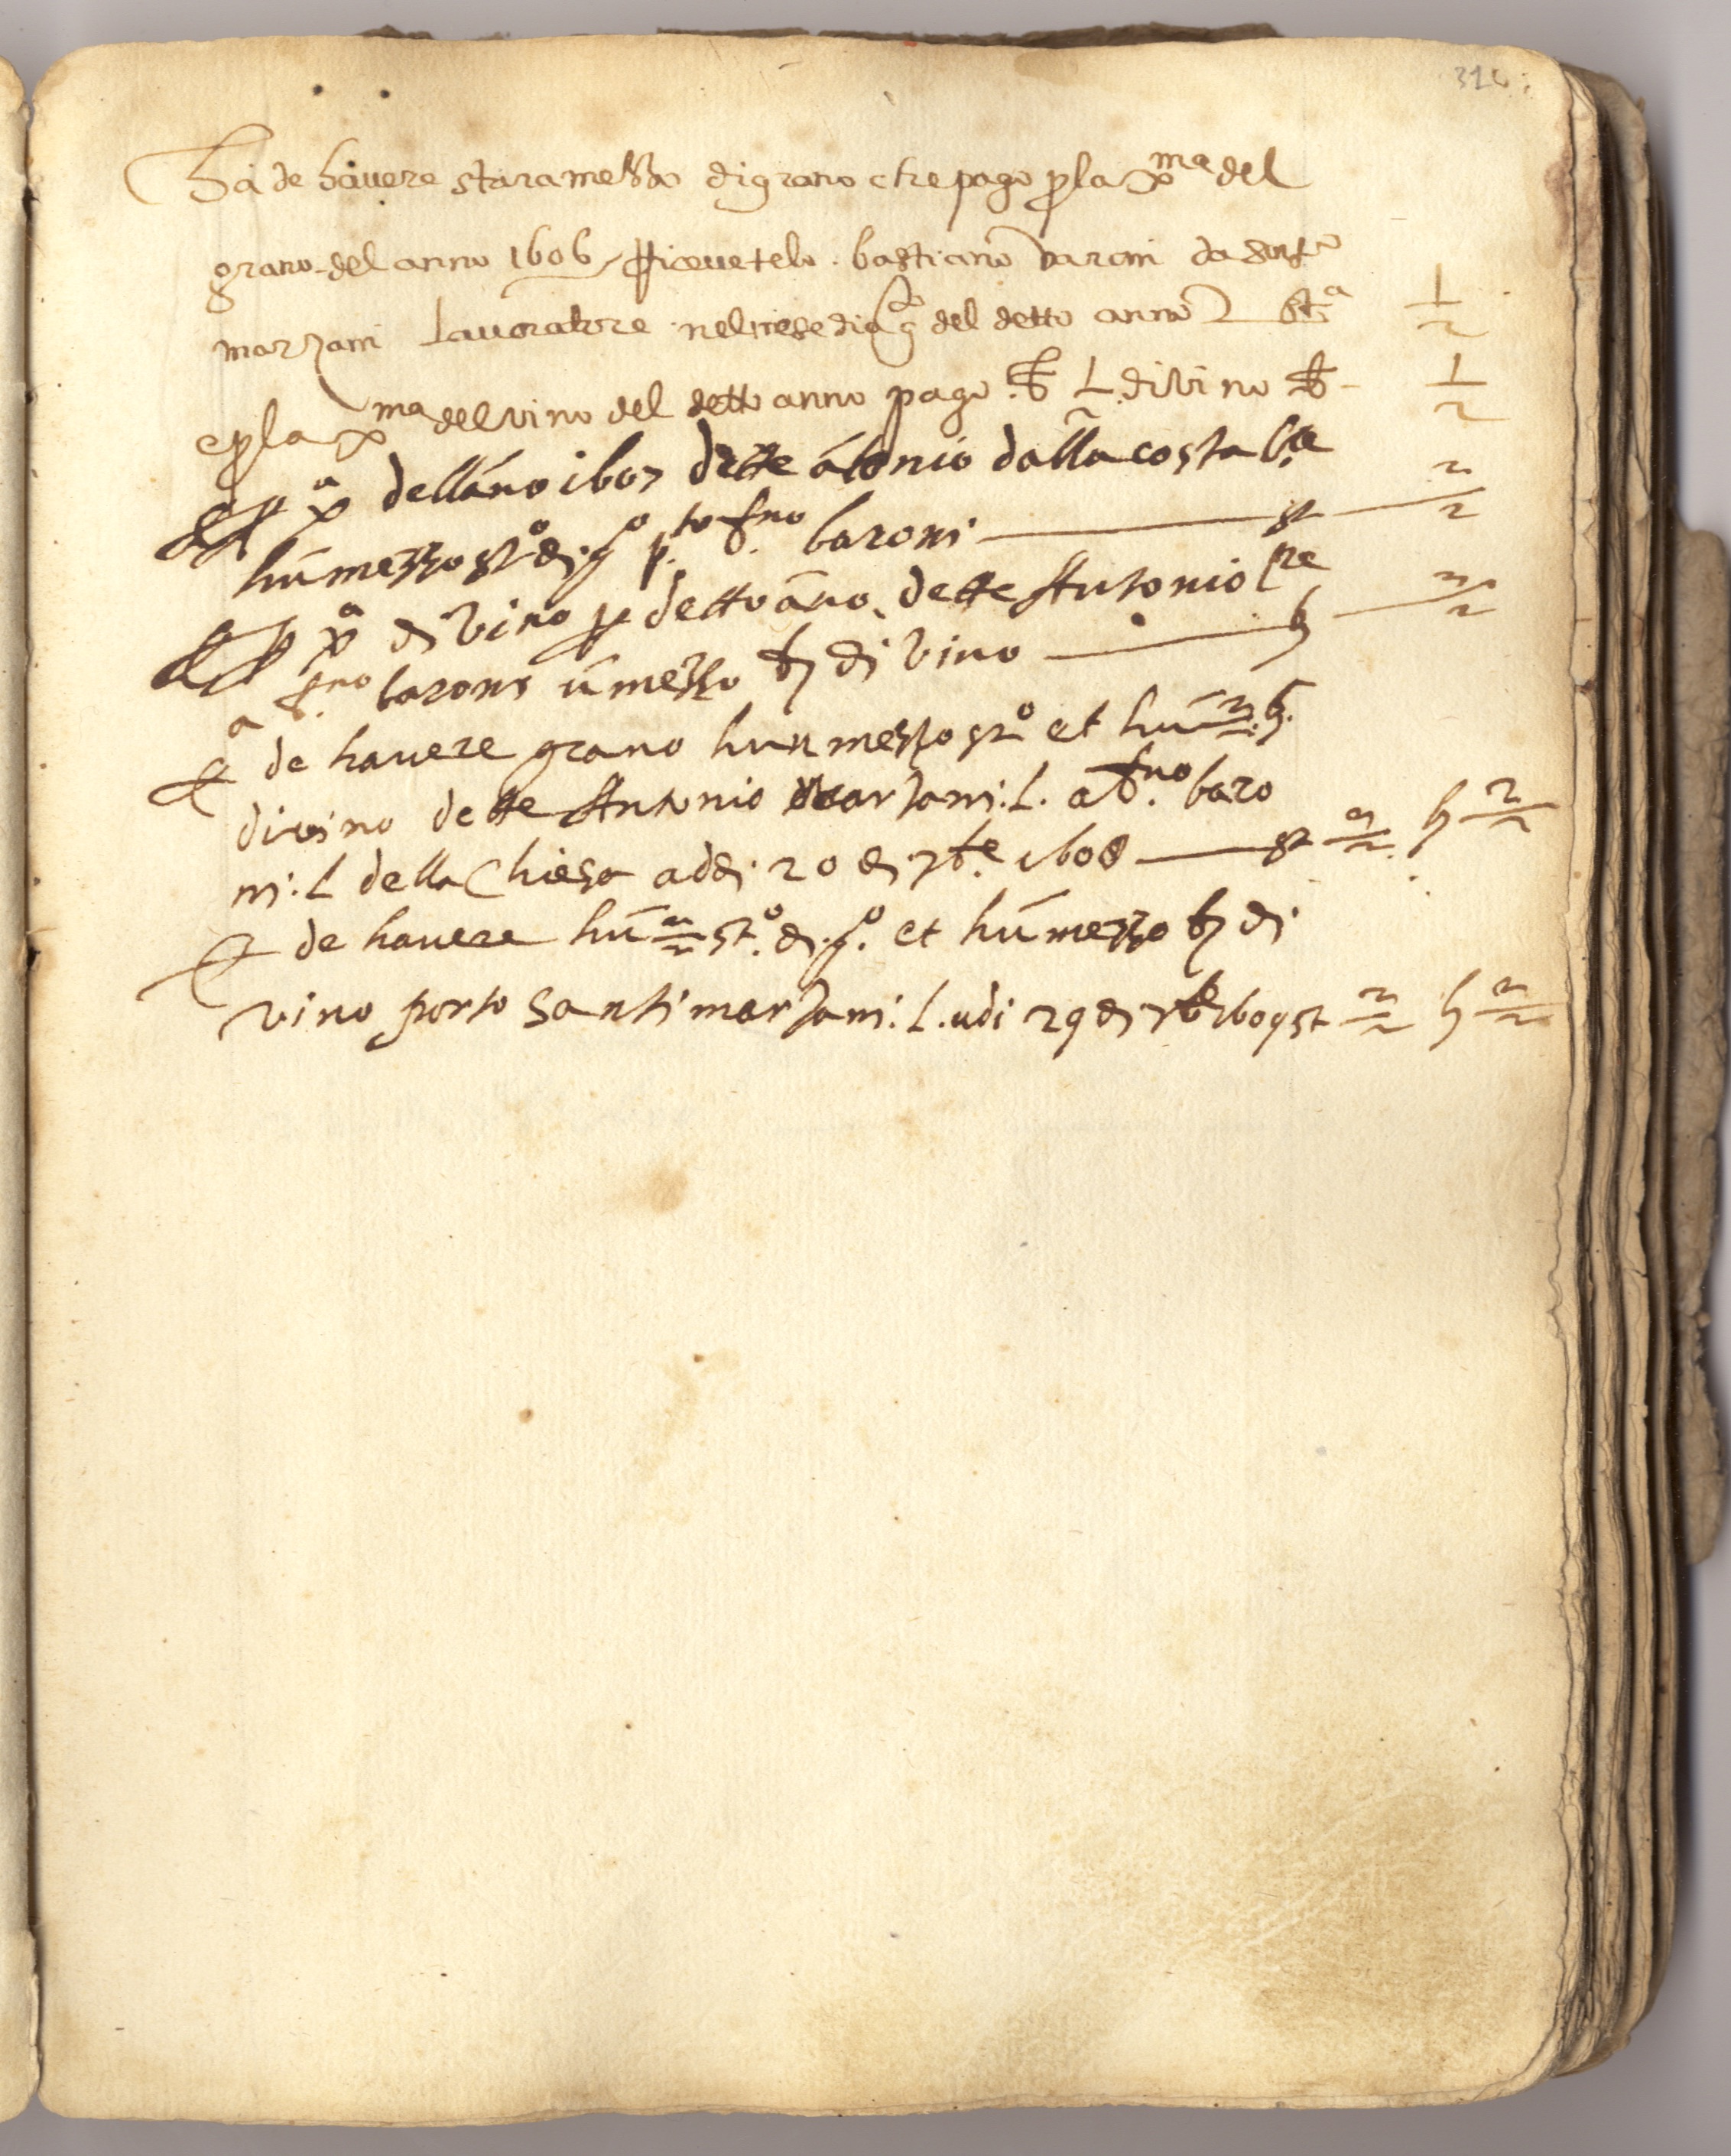 310
Ha de havere stara mezzo di grano che pago p la Xma del
grano del anno 1606 riceuetelo bastiano baroni da
marzani lauoratore nel mese di ag.o del detto anno sta 1/2
e p la Xma del vino del detto anno pago b L di vino b 1/2
E p Xa dell'ano 1607 dette atonio dalla costa
hũ mezzo st.o di g.o baroni st 1/2
E p Xa di vino p detto ãno dette Antonio
baroni ũ mezzo b di vino b 1/2
E de havere grano hun mezzo st.o et hũ 1/2 b.
di vino dette Antonio marzani. L. a baro
ni. L della Chiesa adi 20 di 7bre 1608 st 1/2 b 1/2
E de havere hũ 1/2 st.o di g.o et hũ mezzo b di
vino porto Santi marzani. L. adi 29 di 1609 st 1/2 b 1/2